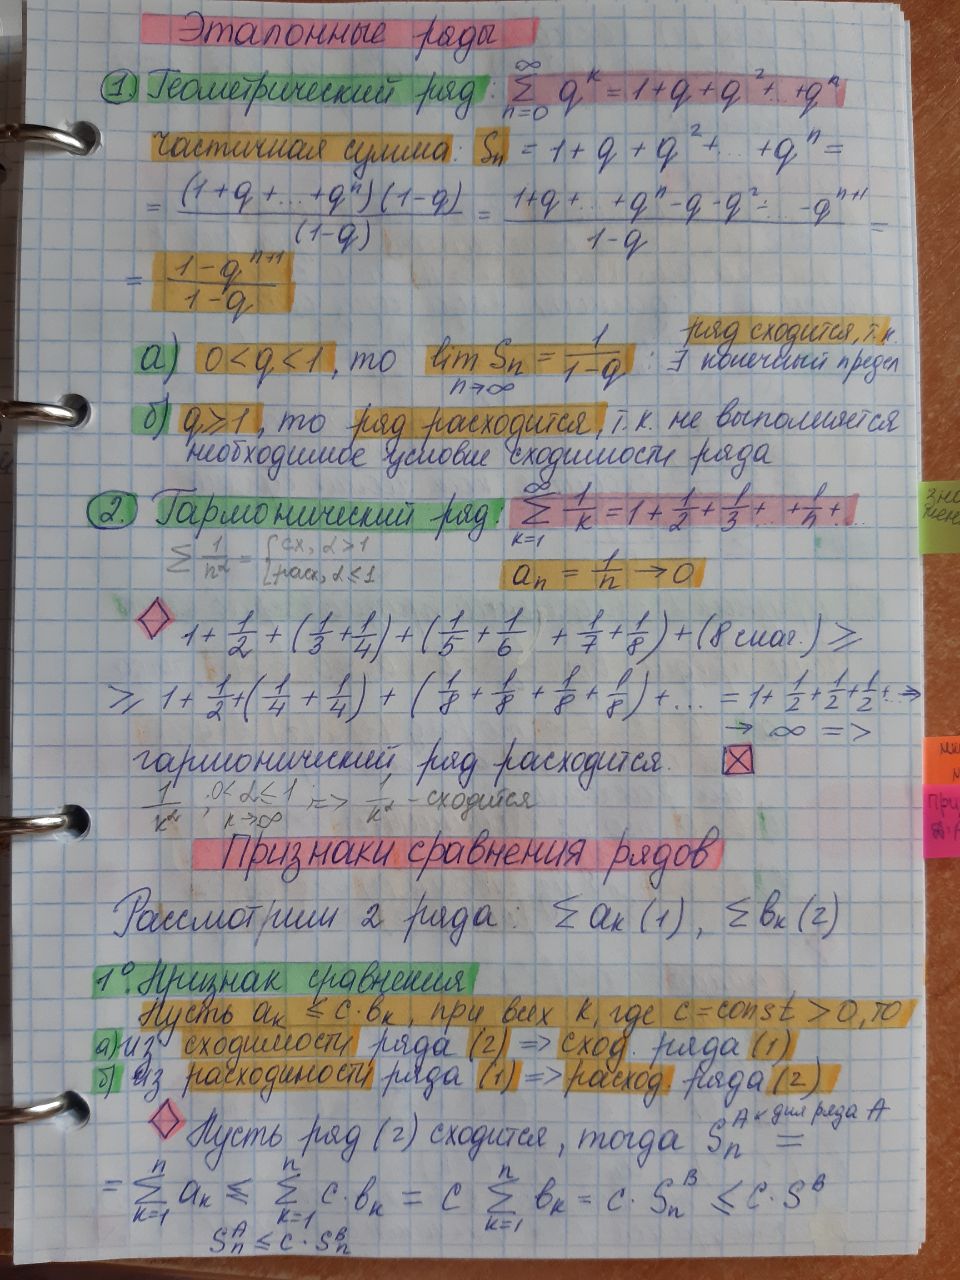 Эталонные ряды
1. Геометрический ряд: ∞ Σ n=0 q^k = 1+q+q^2+...+q^n
частичная сумма: Sn = 1+q+q^2+...+q^n =
= (1+q+...+q^n)(1-q) / (1-q) = 1+q+...+q^n-q-q^2-...-q^(n+1) / 1-q =
= 1-q^(n+1) / 1-q
а) 0<q<1, то lim n→∞ Sn = 1/(1-q) : ряд сходится, т.к. ∃ конечный предел
б) q≥1, то ряд расходится, т.к. не выполняется
необходимое условие сходимости ряда
2. Гармонический ряд: ∞ Σ k=1 1/k = 1+1/2+1/3+...+1/n+...
Σ 1/n^α = { сх, α>1 расх, α≤1
an = 1/n → 0
1+1/2+(1/3+1/4)+(1/5+1/6+1/7+1/8)+(8 слаг.) ≥
≥ 1+1/2+(1/4+1/4)+(1/8+1/8+1/8+1/8)+... = 1+1/2+1/2+1/2+...→
→ ∞ =>
гармонический ряд расходится.
1/k^α ; 0<α≤1 k→∞ => 1/k^α - сходится
Признаки сравнения рядов
Рассмотрим 2 ряда: Σ ak (1), Σ bk (2)
1° Признак сравнения
Пусть ak ≤ c·bk, при всех k, где c=const>0, то
а) из сходимости ряда (2) => сход. ряда (1)
б) из расходимости ряда (1) => расход. ряда (2)
Пусть ряд (2) сходится, тогда Sn^A ← для ряда A =
= n Σ k=1 ak ≤ n Σ k=1 c·bk = c n Σ k=1 bk = c·Sn^B ≤ c·S^B
Sn^A ≤ c·Sn^B